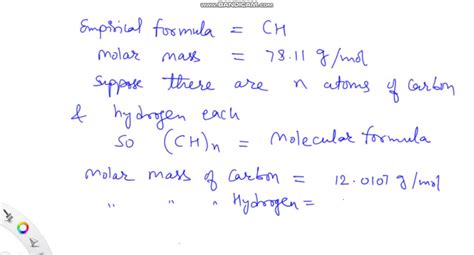 www.BANDICAM.com
Empirical formula = CH
molar mass = 78.11 g/mol
Suppose there are n atoms of carbon
& hydrogen each
so (CH)n = molecular formula
Molar mass of carbon = 12.0107 g/mol
" " " Hydrogen =